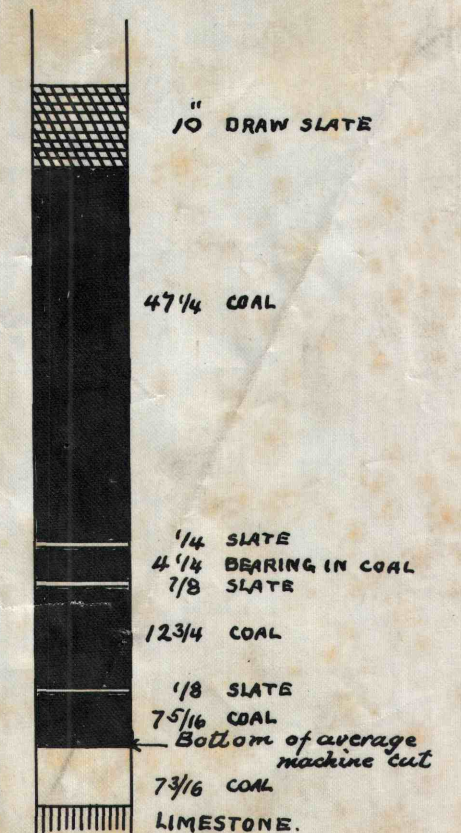 10" DRAW SLATE
47 1/4 COAL
1/4 SLATE
4 1/4 BEARING IN COAL
7/8 SLATE
12 3/4 COAL
1/8 SLATE
7 5/16 COAL
Bottom of average
machine cut
7 3/16 COAL
LIMESTONE.